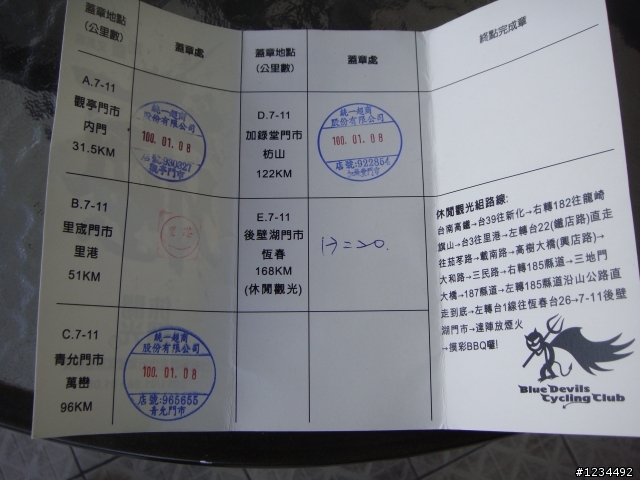 蓋章地點
(公里數)
蓋章處
A.7-11
觀亭門市
內門
31.5KM
統一超商
股份有限公司
100. 01. 08
店號:930327
觀亭門市
B.7-11
里宬門市
里港
51KM
里港
C.7-11
青允門市
萬巒
96KM
統一超商
股份有限公司
100. 01. 08
店號:965655
青允門市
蓋章地點
(公里數)
蓋章處
D.7-11
加錄堂門市
枋山
122KM
統一超商
股份有限公司
100. 01. 08
店號:922854
E.7-11
後壁湖門市
恆春
168KM
(休閒觀光)
17=20.
終點完成章
休閒觀光組路線:
台南高鐵→台39往新化→右轉182往龍崎
旗山→台3往里港→左轉台22(鐵店路)直走
往茄苳路→載南路→高樹大橋(興店路)→
大和路→三民路→右轉185縣道→三地門
大橋→187縣道→左轉185縣道沿山公路直
走到底→左轉台1線往恆春台26→7-11後壁
湖門市→達陣放煙火
→摸彩BBQ囉!
Blue Devils
Cycling Club
#1234492